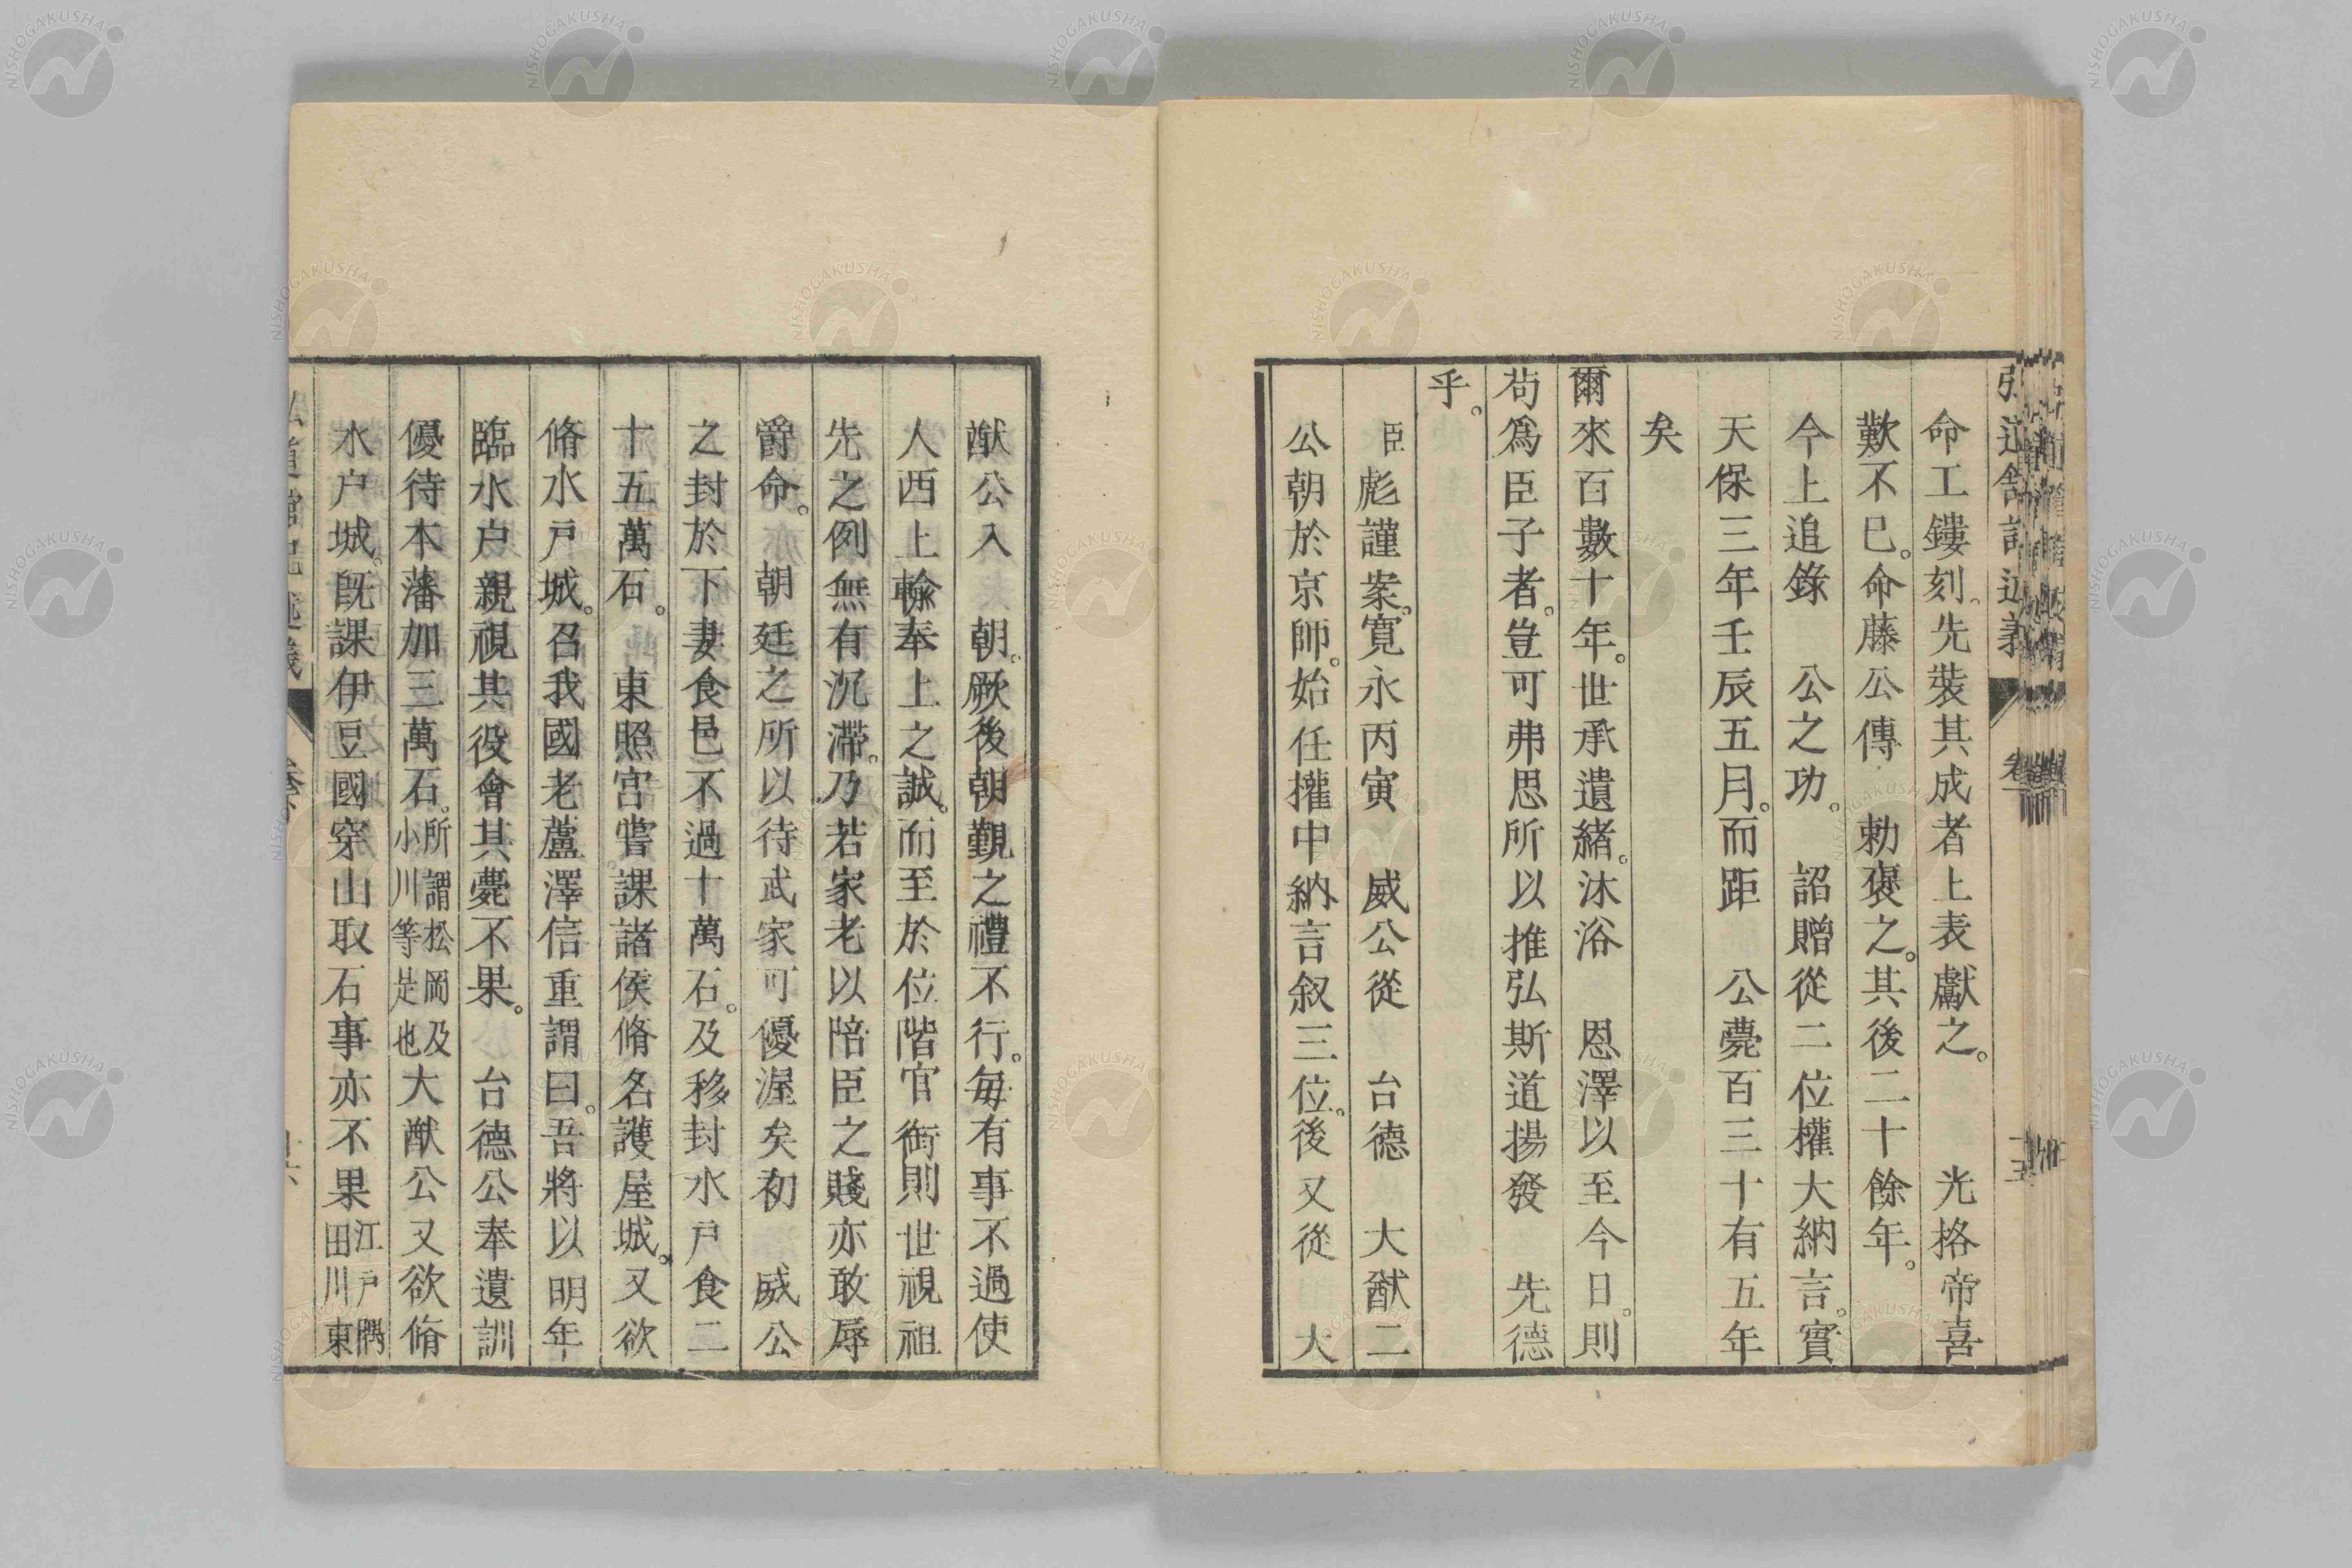 命工鏤刻。先裝其成者上表獻之。　光格帝喜
歎不已。命藤公傳　勅褒之。其後二十餘年。
今上追錄　公之功。　詔贈從二位權大納言。實
天保三年壬辰五月。而距　公薨百三十有五年
矣
爾來百數十年。世承遺緒。沐浴　恩澤以至今日。則
苟爲臣子者。豈可弗思所以推弘斯道揚發　先德
乎。
臣彪謹案。寬永丙寅　威公從　台德　大猷二
公朝於京師。始任權中納言叙三位。後又從　大
猷公入　朝。厥後朝覲之禮不行。每有事不過使
人西上輸奉上之誠。而至於位階官銜則世視祖
先之例無有沉滯。乃若家老以陪臣之賤亦敢辱
爵命。　朝廷之所以待武家可優渥矣初　威公
之封於下妻食邑不過十萬石。及移封水戶食二
十五萬石。　東照宮嘗課諸侯脩名護屋城。又欲
脩水戶城。召我國老蘆澤信重謂曰。吾將以明年
臨水戶親視其役會其薨不果。　台德公奉遺訓
優待本藩加三萬石。所謂松岡及小川等是也大猷公又欲脩
水戶城。旣課伊豆國穿山取石事亦不果江戶隅田川東
弘道館記述義
卷下
NISHOGAKUSHA